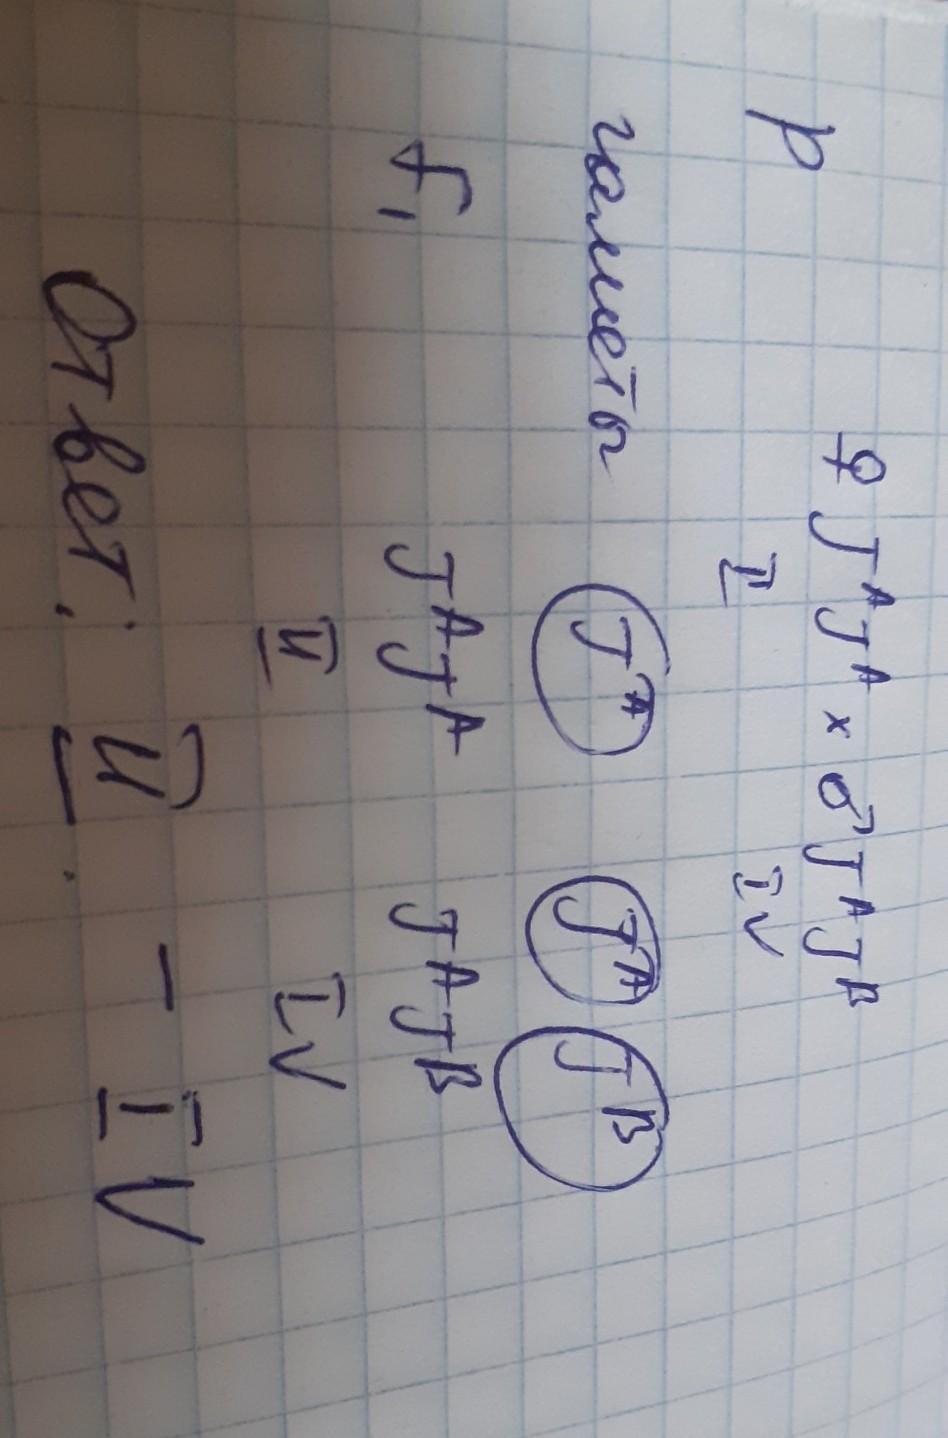 P ♀ J^A J^A × ♂ J^A J^B
II IV
гаметы J^A J^A J^B
F₁ J^A J^A J^A J^B
II IV
Ответ: II - IV